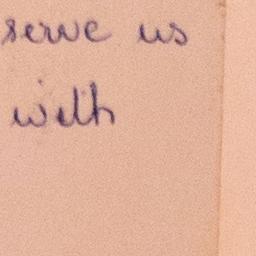 serve us
with